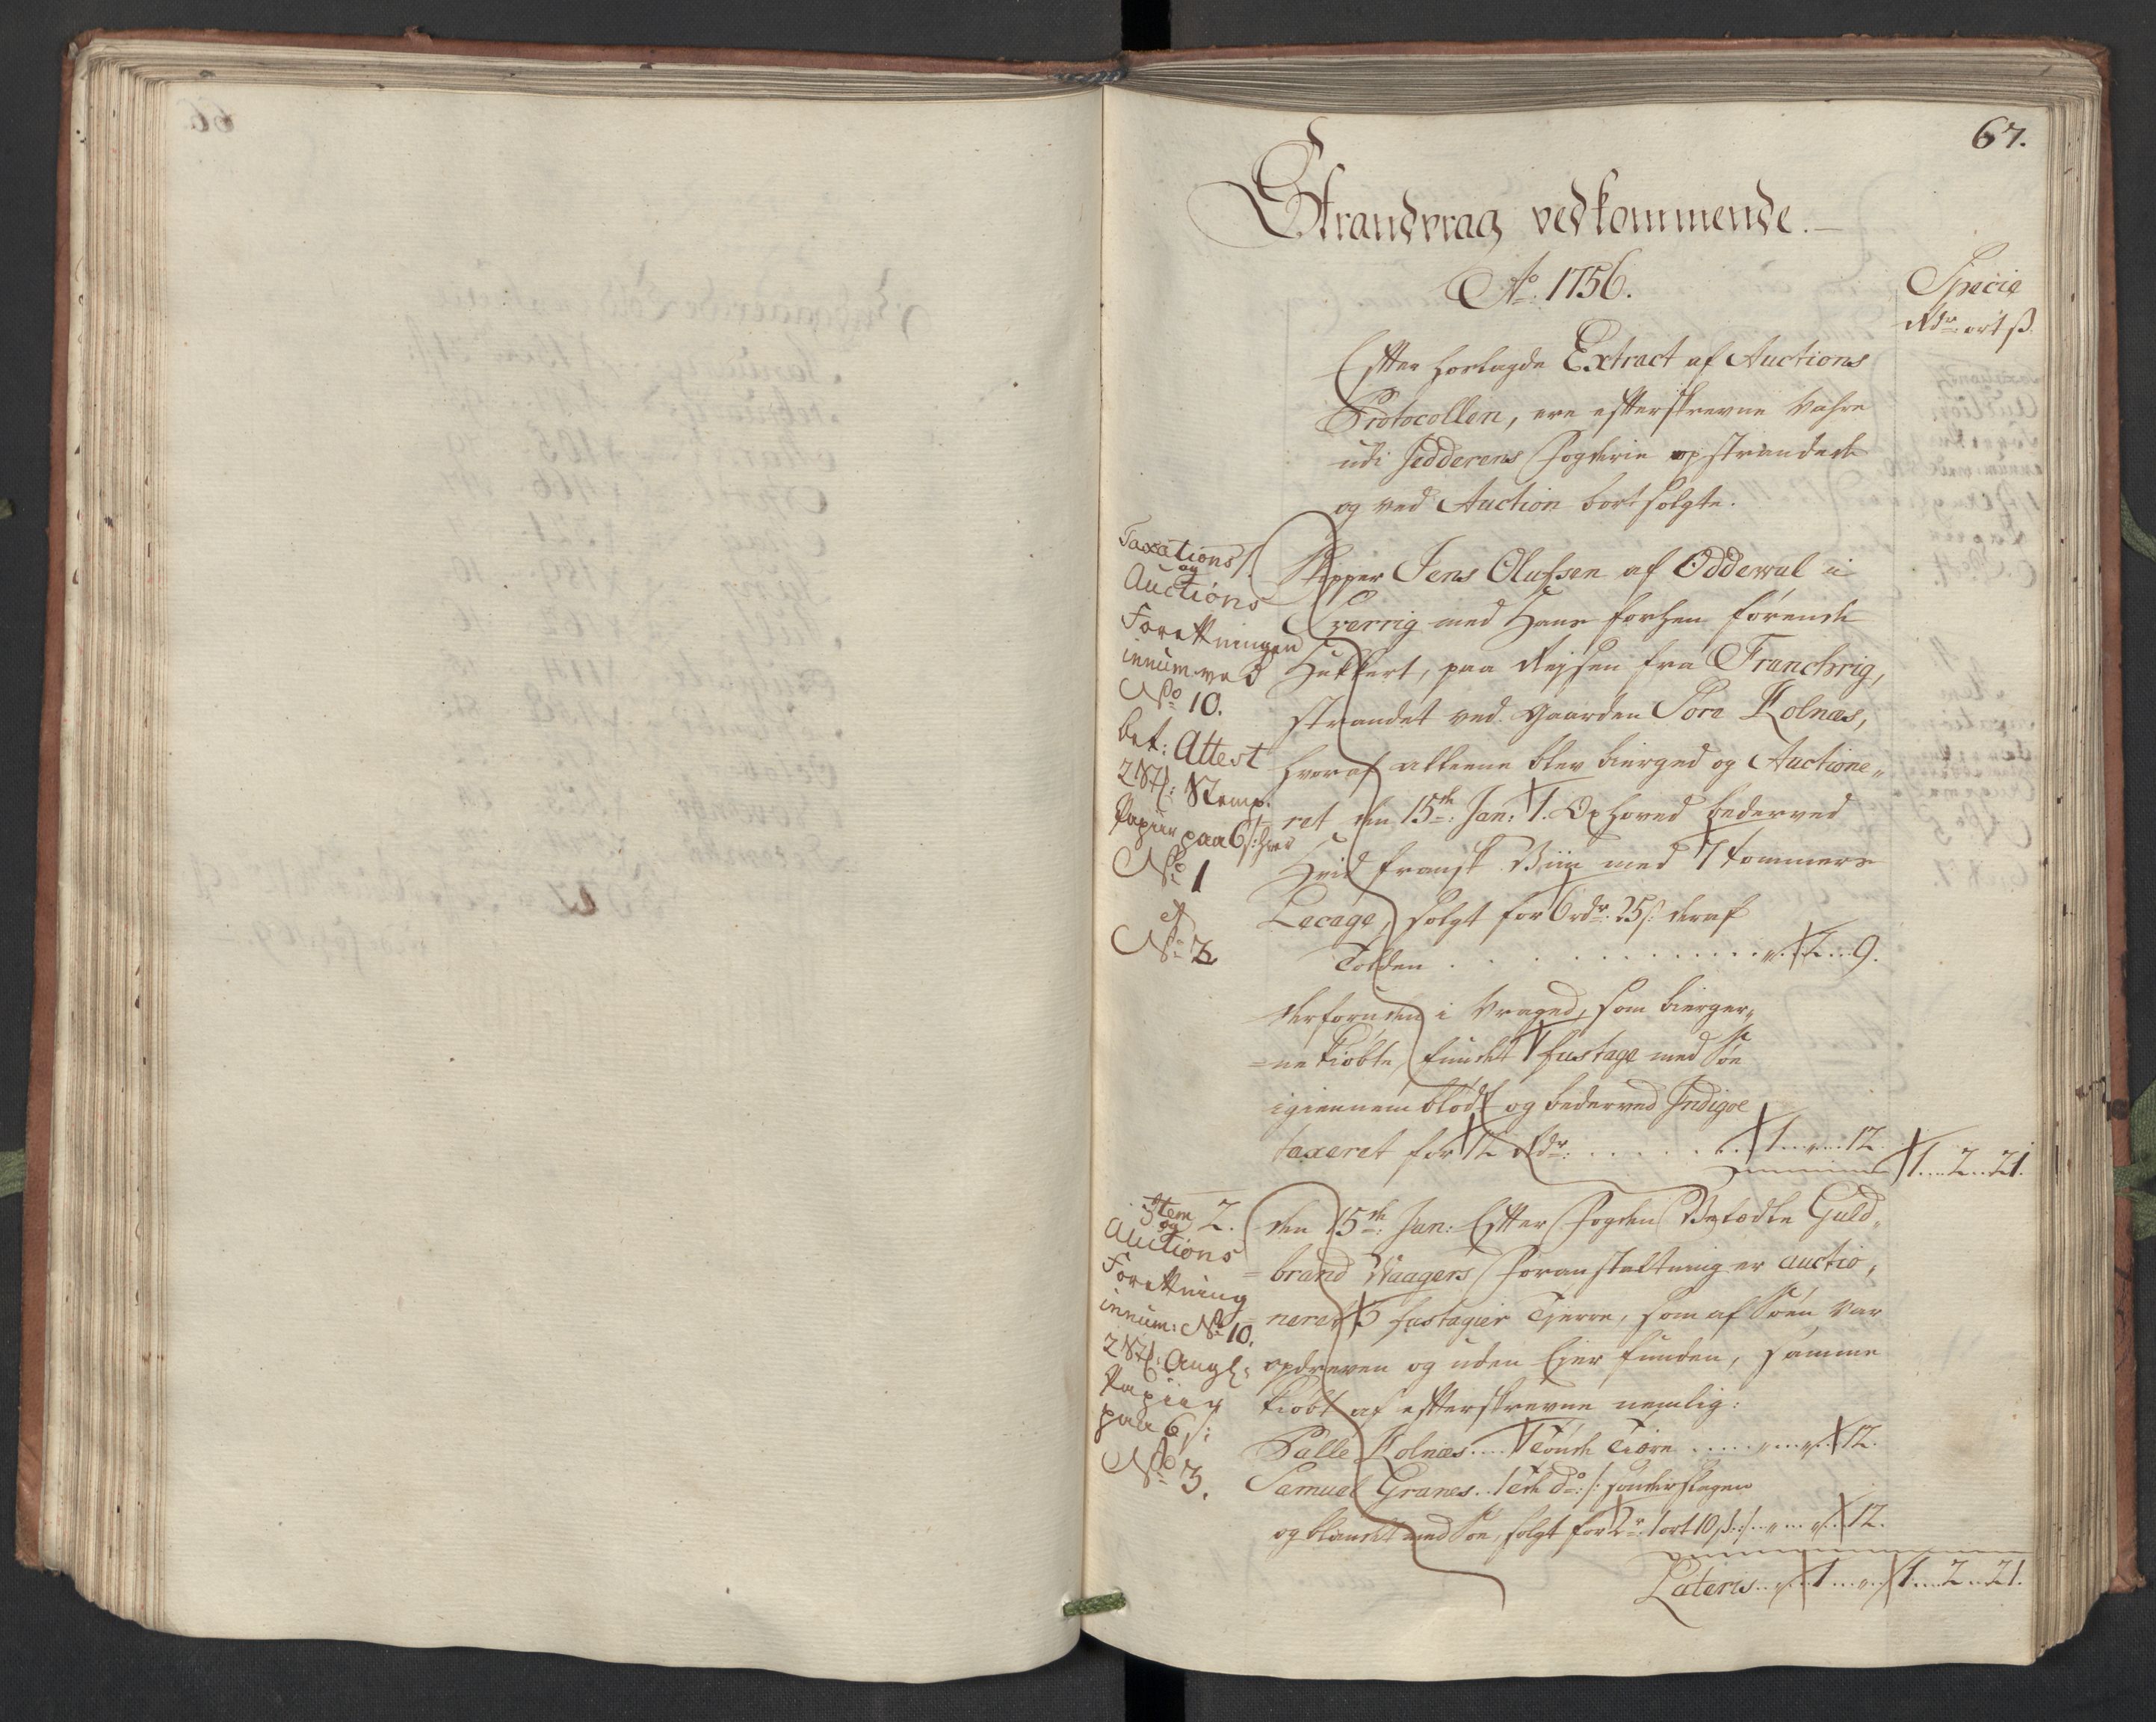 67.
Strandvrag vedkommende.
Ao. 1756.
Specie
Rdr. ort ß.
Efter forlagde Extract af Auctions
Protocollen, ere efterskrevne Vahre
udi Jedderens Fogderie opstrandede
og ved Auction bortsolgte.
Taxations
og
Auctions
Forretningen
innum. ved
No. 10.
bet: Attest
2 Stk: Stemp.
Papiir paa 6 ß: hver
No. 1
et
No. 3
1.
Skipper Jens Olufsen af Oddewal i
Sverrig med Hans forhen førende
Hukkert, paa Reysen fra Franchrig,
strandet ved Gaarden Søre Kolnæs,
hvoraf alleene blev bierged og Auctione„
ret den 15de: Jan: 1. Oxhoved bederved
Hvid fransk Viin med 7 tommers
Lecage, solgt for 6 rdr. 25 ß. deraf
Tolden . . . „ . . 2 . . 9.
derforuden i Vraged, som bierger„
=ne kiøbte, funded 1 fustage med Søe
igiennemblødt og bederved Indigoe
taxeret for 12 Rdr: . . . 1 . . „ . . 12
1 . . 2 . . 21.
Item
og
Auctions
Forretning
innum: No. 10.
2 Stk: Angl:
Papiir
paa 6 ß:
No. 3.
2.
den 15de: Jan: Efter Fogden Velædle Guld„
=brand Waagers Foranstaltning er auctio„
neret 5 fustagier Tjerre, som af Søen var
opdreven og uden Ejer funden, samme
kiøbt af efterskrevne nemlig:
Palle Kolnæs . . . 1 Tønde Tiære . . . „ . . „ . . 12.
Samuel Granes . . 1 Tde do: /: sønderslagen
og blandet med Søe, solgt for 2r. 1 ort 10 ß :/ . . „ . . „ . . 12.
Lateris . . „ . . 1 . . „ . . 1 . . 2 . . 21.